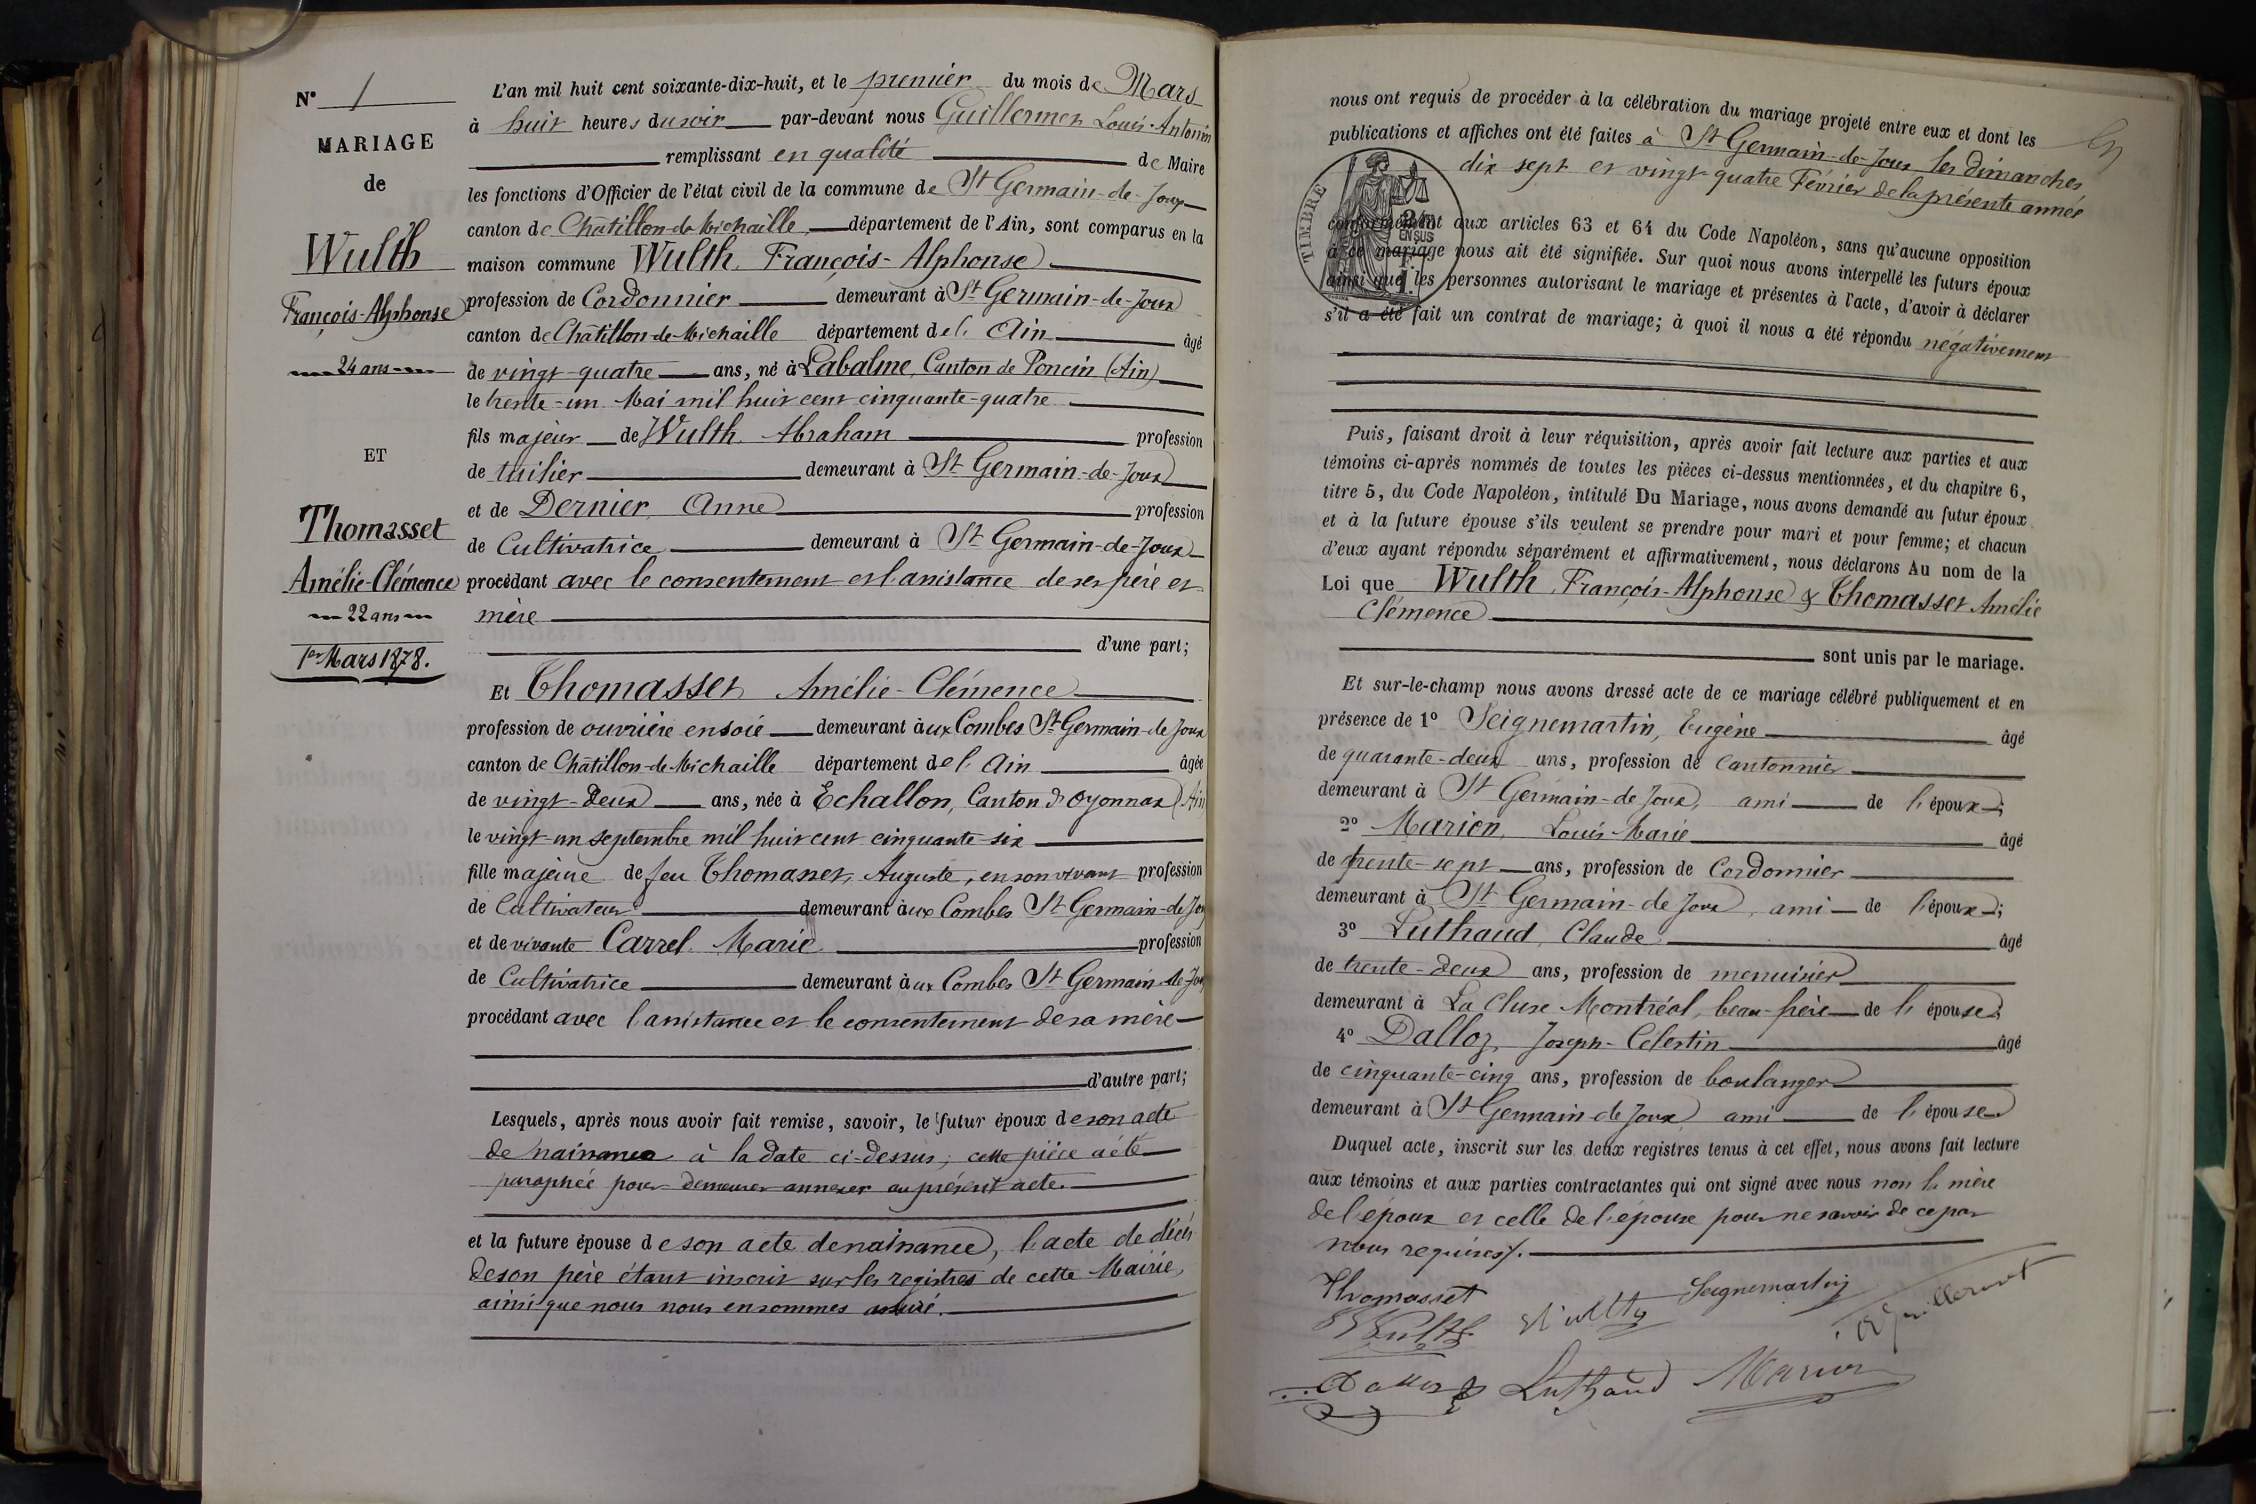 N° 1
MARIAGE
de
Wulth
François-Alphonse
24 ans
ET
Thomasset
Amélie-Clémence
22 ans
1er Mars 1878.
L'an mil huit cent soixante-dix-huit, et le premier du mois de Mars
à huit heures du soir par-devant nous Guillermet Louis-Antonin
remplissant en qualité de Maire
les fonctions d'Officier de l'état civil de la commune de St Germain-de-Joux
canton de Châtillon-de-Michaille, département de l'Ain, sont comparus en la
maison commune Wulth, François-Alphonse
profession de Cordonnier demeurant à St Germain-de-Joux
canton de Châtillon-de-Michaille département de l'Ain âgé
de vingt-quatre ans, né à Labalme, Canton de Poncin (Ain)
le trente-un Mai mil huit cent cinquante-quatre
fils majeur de Wulth Abraham profession
de tuilier demeurant à St Germain-de-Joux
et de Dernier Anne profession
de Cultivatrice demeurant à St Germain-de-Joux
procédant avec le consentement et l'assistance de ses père et
mère
d'une part;
Et Thomasset Amélie-Clémence
profession de ouvrière en soie demeurant aux Combes St Germain-de Joux
canton de Châtillon-de-Michaille département de l'Ain âgée
de vingt-deux ans, née à Echallon, Canton d'Oyonnax (Ain
le vingt-un septembre mil huit cent cinquante-six
fille majeure de feu Thomasset, Auguste, en son vivant profession
de Cultivateur demeurant aux Combes St Germain-de Jou
et de vivante Carrel Marie profession
de Cultivatrice demeurant aux Combes St Germain-de-Jou
procédant avec l'assistance et le consentement de sa mère
d'autre part;
Lesquels, après nous avoir fait remise, savoir, le futur époux de son acte
de naissance à la date ci-dessus; cette pièce a été
paraphée pour demeurer annexer au présent acte.
et la future épouse de son acte de naissance, l'acte de décès
de son père étant inscrit sur les registres de cette Mairie,
ainsi que nous nous en sommes assuré.
nous ont requis de procéder à la célébration du mariage projeté entre eux et dont les
publications et affiches ont été faites à St Germain-de-Joux les dimanches
dix sept et vingt-quatre Février de la présente année
TIMBRE
conformément aux articles 63 et 64 du Code Napoléon, sans qu'aucune opposition
à ce mariage nous ait été signifiée. Sur quoi nous avons interpellé les futurs époux
ainsi que les personnes autorisant le mariage et présentes à l'acte, d'avoir à déclarer
s'il a été fait un contrat de mariage; à quoi il nous a été répondu négativement
Puis, faisant droit à leur réquisition, après avoir fait lecture aux parties et aux
témoins ci-après nommés de toutes les pièces ci-dessus mentionnées, et du chapitre 6,
titre 5, du Code Napoléon, intitulé Du Mariage, nous avons demandé au futur époux
et à la future épouse s'ils veulent se prendre pour mari et pour femme; et chacun
d'eux ayant répondu séparément et affirmativement, nous déclarons Au nom de la
Loi que Wulth, François-Alphonse & Thomasset Amélie
Clémence
sont unis par le mariage.
Et sur-le-champ nous avons dressé acte de ce mariage célébré publiquement et en
présence de 1° Seignemartin, Eugène âgé
de quarante-deux ans, profession de Cantonnier
demeurant à St Germain-de Joux, ami de l'époux;
2° Marion, Louis-Marie âgé
de trente-sept ans, profession de Cordonnier
demeurant à St Germain-de Joux, ami de l'époux;
3° Luthaud, Claude âgé
de trente-deux ans, profession de menuisier
demeurant à La Cluse Montréal, beau-frère de l'épouse;
4° Dalloz, Joseph-Célestin âgé
de cinquante-cinq ans, profession de boulanger
demeurant à St Germain-de Joux ami de l'épouse
Duquel acte, inscrit sur les deux registres tenus à cet effet, nous avons fait lecture
aux témoins et aux parties contractantes qui ont signé avec nous non la mère
de l'époux et celle de l'épouse pour ne savoir de ce par
nous requises.
Thomasset
Wulth
Wulth
Seignemartin
Guillermet
Dalloz
Luthaud
Marion